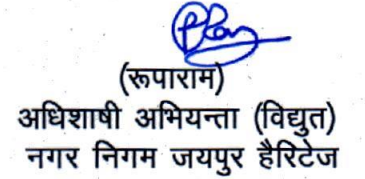 (रूपाराम)
अधिशाषी अभियन्ता (विद्युत)
नगर निगम जयपुर हैरिटेज